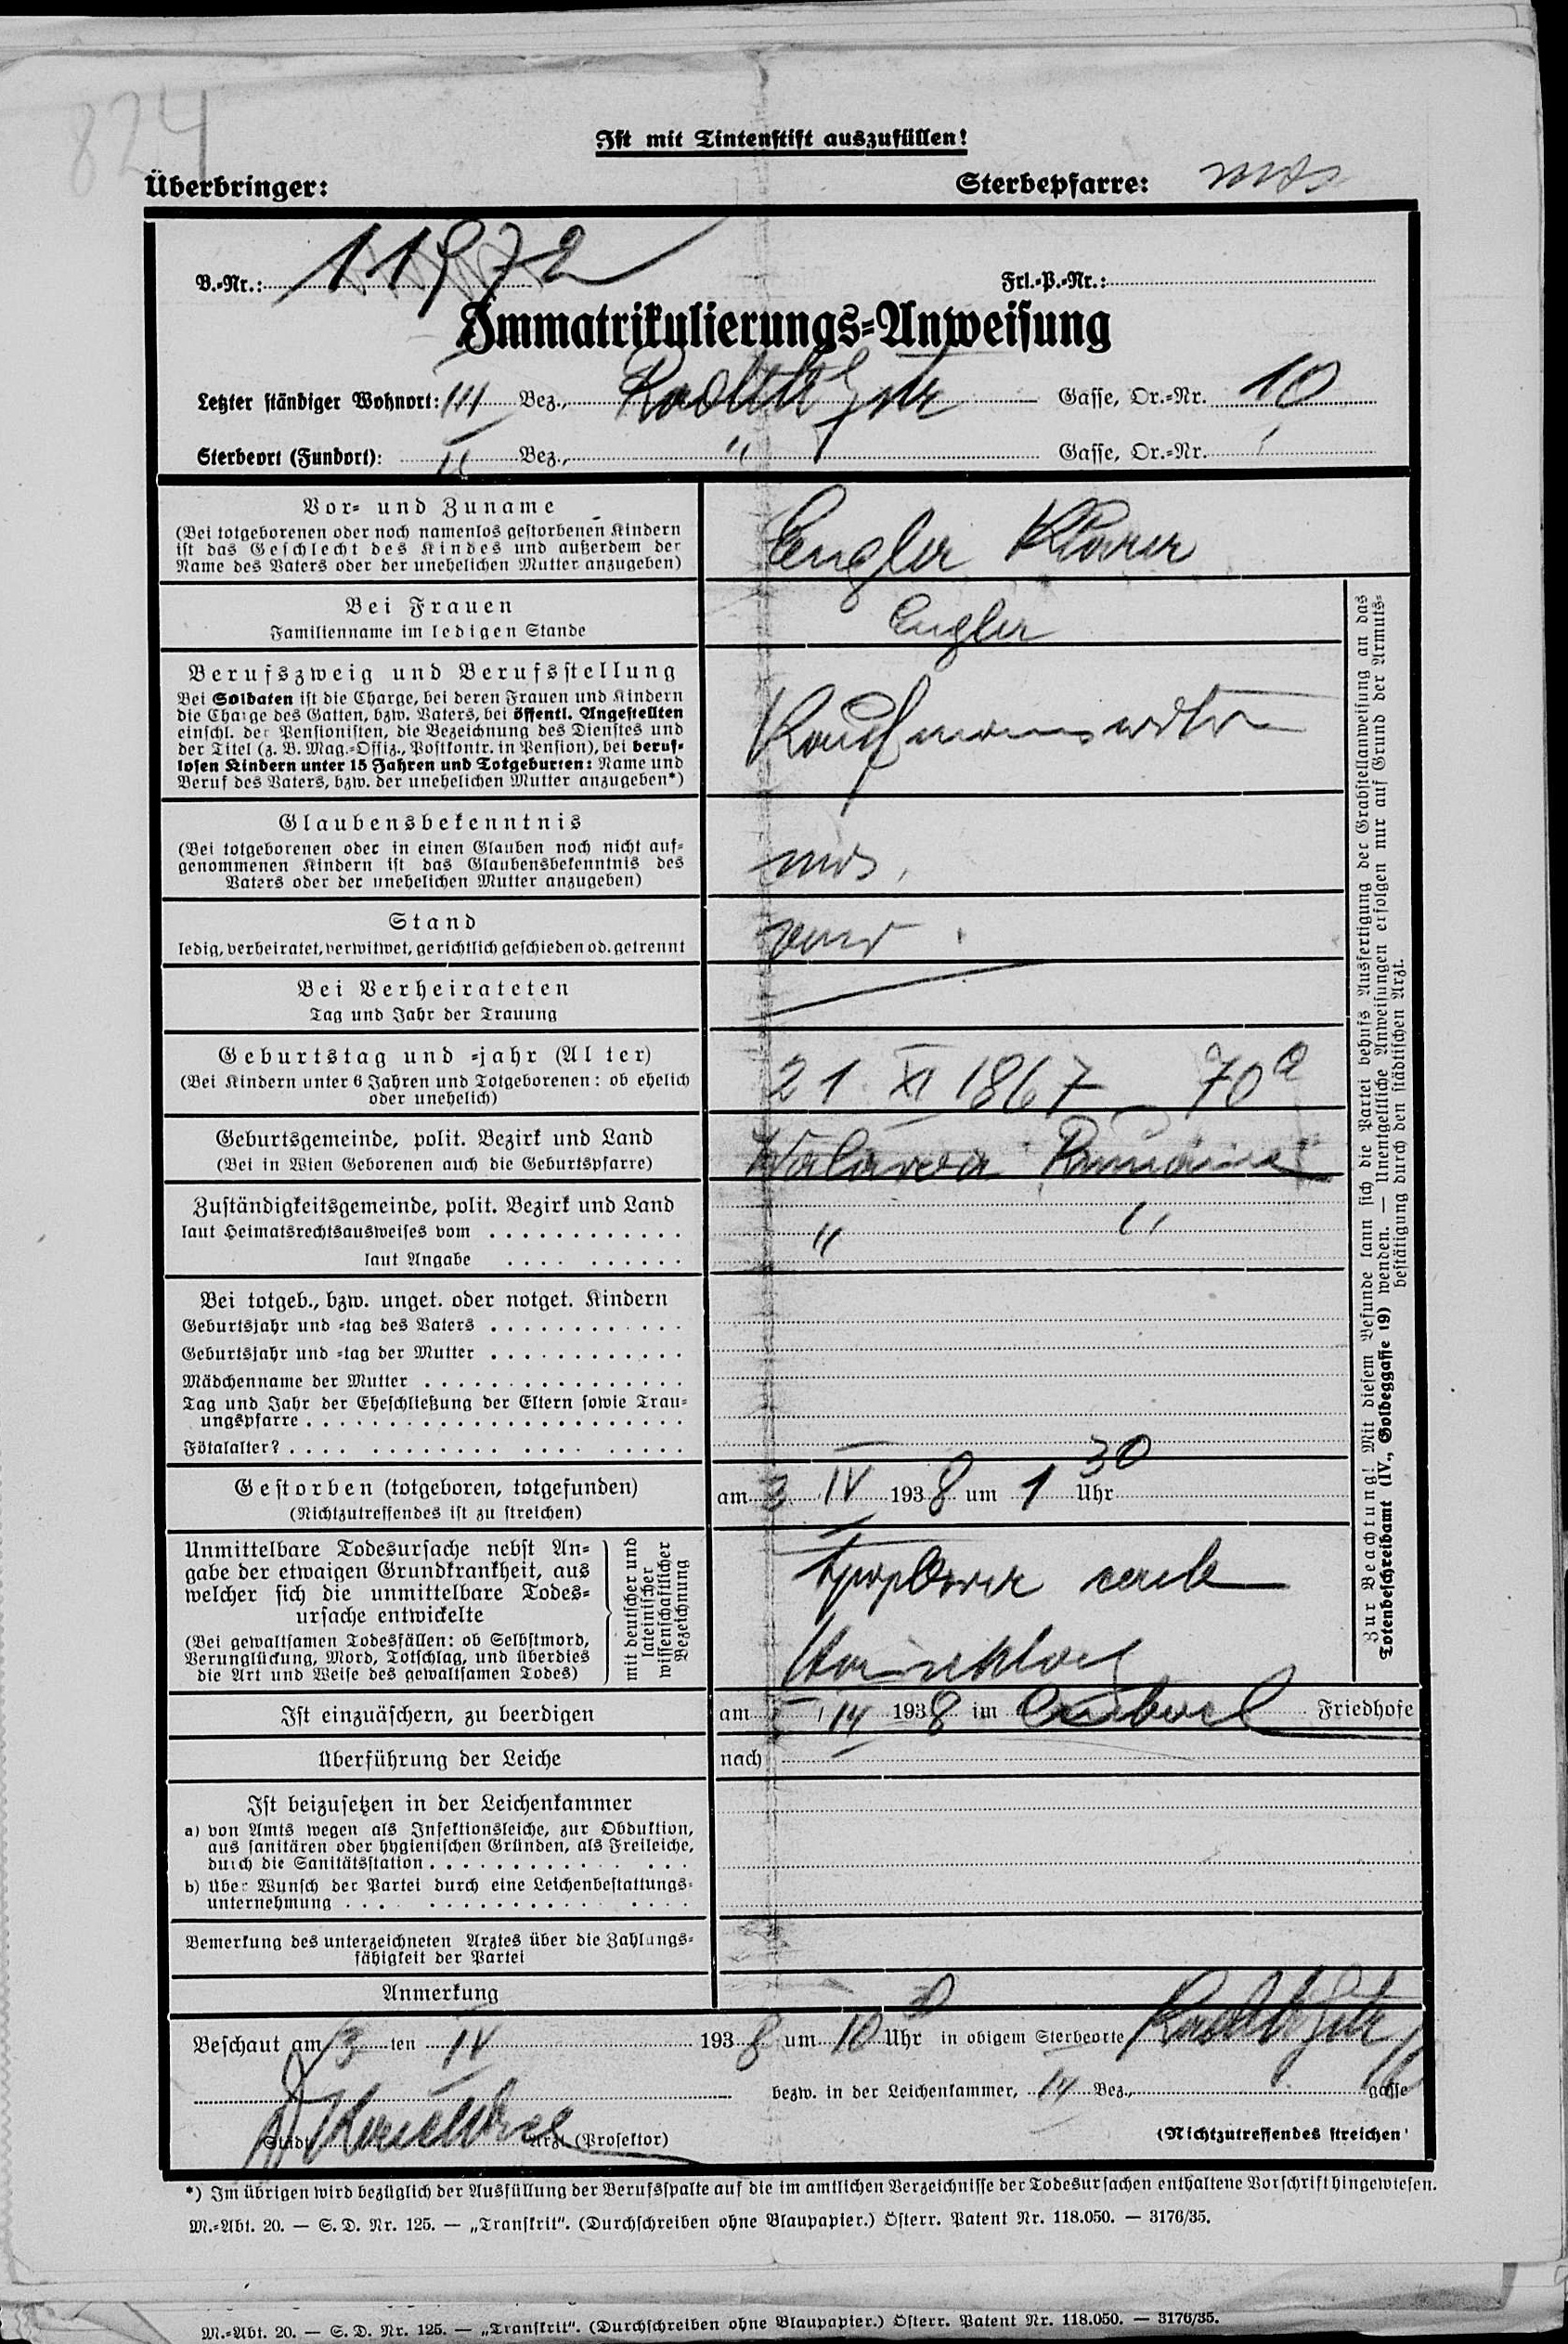 824
Ist mit Tintenstift auszufüllen!
Überbringer: Sterbepfarre: mos
B.-Nr.: 11972 Frl.-P.-Nr.:
Immatrikulierungs-Anweisung
Letzter ständiger Wohnort: III Bez., Gasse, Or.-Nr. 10
Sterbeort (Fundort): Bez., " Gasse, Or.-Nr.
Vor- und Zuname
(Bei totgeborenen oder noch namenlos gestorbenen Kindern
ist das Geschlecht des Kindes und außerdem der
Name des Vaters oder der unehelichen Mutter anzugeben)
Engler
Bei Frauen
Familienname im ledigen Stande
Engler
Berufszweig und Berufsstellung
Bei Soldaten ist die Charge, bei deren Frauen und Kindern
die Charge des Gatten, bzw. Vaters, bei öffentl. Angestellten
einschl. der Pensionisten, die Bezeichnung des Dienstes und
der Titel (z. B. Mag.-Offiz., Postkontr. in Pension), bei beruf-
losen Kindern unter 15 Jahren und Totgeburten: Name und
Beruf des Vaters, bzw. der unehelichen Mutter anzugeben*)
Kaufmannswitwe
Glaubensbekenntnis
(Bei totgeborenen oder in einen Glauben noch nicht auf-
genommenen Kindern ist das Glaubensbekenntnis des
Vaters oder der unehelichen Mutter anzugeben)
mos.
Stand
ledig, verheiratet, verwitwet, gerichtlich geschieden od. getrennt
verw.
Bei Verheirateten
Tag und Jahr der Trauung
Geburtstag und -jahr (Alter)
(Bei Kindern unter 6 Jahren und Totgeborenen: ob ehelich
oder unehelich)
21 XI 1867 70 a
Geburtsgemeinde, polit. Bezirk und Land
(Bei in Wien Geborenen auch die Geburtspfarre)
Zuständigkeitsgemeinde, polit. Bezirk und Land
laut Heimatsrechtsausweises vom
" "
laut Angabe
Bei totgeb., bzw. unget. oder notget. Kindern
Geburtsjahr und -tag des Vaters
Geburtsjahr und -tag der Mutter
Mädchenname der Mutter
Tag und Jahr der Eheschließung der Eltern sowie Trau-
ungspfarre
Fötalalter?
Gestorben (totgeboren, totgefunden)
(Nichtzutreffendes ist zu streichen)
am 3 IV 1938 um 1 30 Uhr
Unmittelbare Todesursache nebst An-
gabe der etwaigen Grundkrankheit, aus
welcher sich die unmittelbare Todes-
ursache entwickelte
(Bei gewaltsamen Todesfällen: ob Selbstmord,
Verunglückung, Mord, Totschlag, und überdies
die Art und Weise des gewaltsamen Todes)
mit deutscher und
lateinischer
wissenschaftlicher
Bezeichnung
Ist einzuäschern, zu beerdigen
am IV 1938 im Friedhofe
Überführung der Leiche
nach
Ist beizusetzen in der Leichenkammer
a) von Amts wegen als Infektionsleiche, zur Obduktion,
aus sanitären oder hygienischen Gründen, als Freileiche,
durch die Sanitätsstation
b) Über Wunsch der Partei durch eine Leichenbestattungs-
unternehmung
Bemerkung des unterzeichneten Arztes über die Zahlungs-
fähigkeit der Partei
Anmerkung
Zur Beachtung! Mit diesem Befunde kann sich die Partei behufs Ausfertigung der Grabstellanweisung an das
Totenbeschreibamt (IV., Goldeggasse 19) wenden. — Unentgeltliche Anweisungen erfolgen nur auf Grund der Armuts-
bestätigung durch den städtischen Arzt.
Beschaut am 3 ten IV 1938 um 10 Uhr in obigem Sterbeorte
bezw. in der Leichenkammer, Bez., gasse
Städt. Arzt (Prosektor) (Nichtzutreffendes streichen
*) Im übrigen wird bezüglich der Ausfüllung der Berufsspalte auf die im amtlichen Verzeichnisse der Todesursachen enthaltene Vorschrift hingewiesen.
M.-Abt. 20. — S. D. Nr. 125. — „Transkrit". (Durchschreiben ohne Blaupapier.) Österr. Patent Nr. 118.050. — 3176/35.
M.-Abt. 20. — S. D. Nr. 125. — „Transkrit". (Durchschreiben ohne Blaupapier.) Österr. Patent Nr. 118.050. — 3176/35.